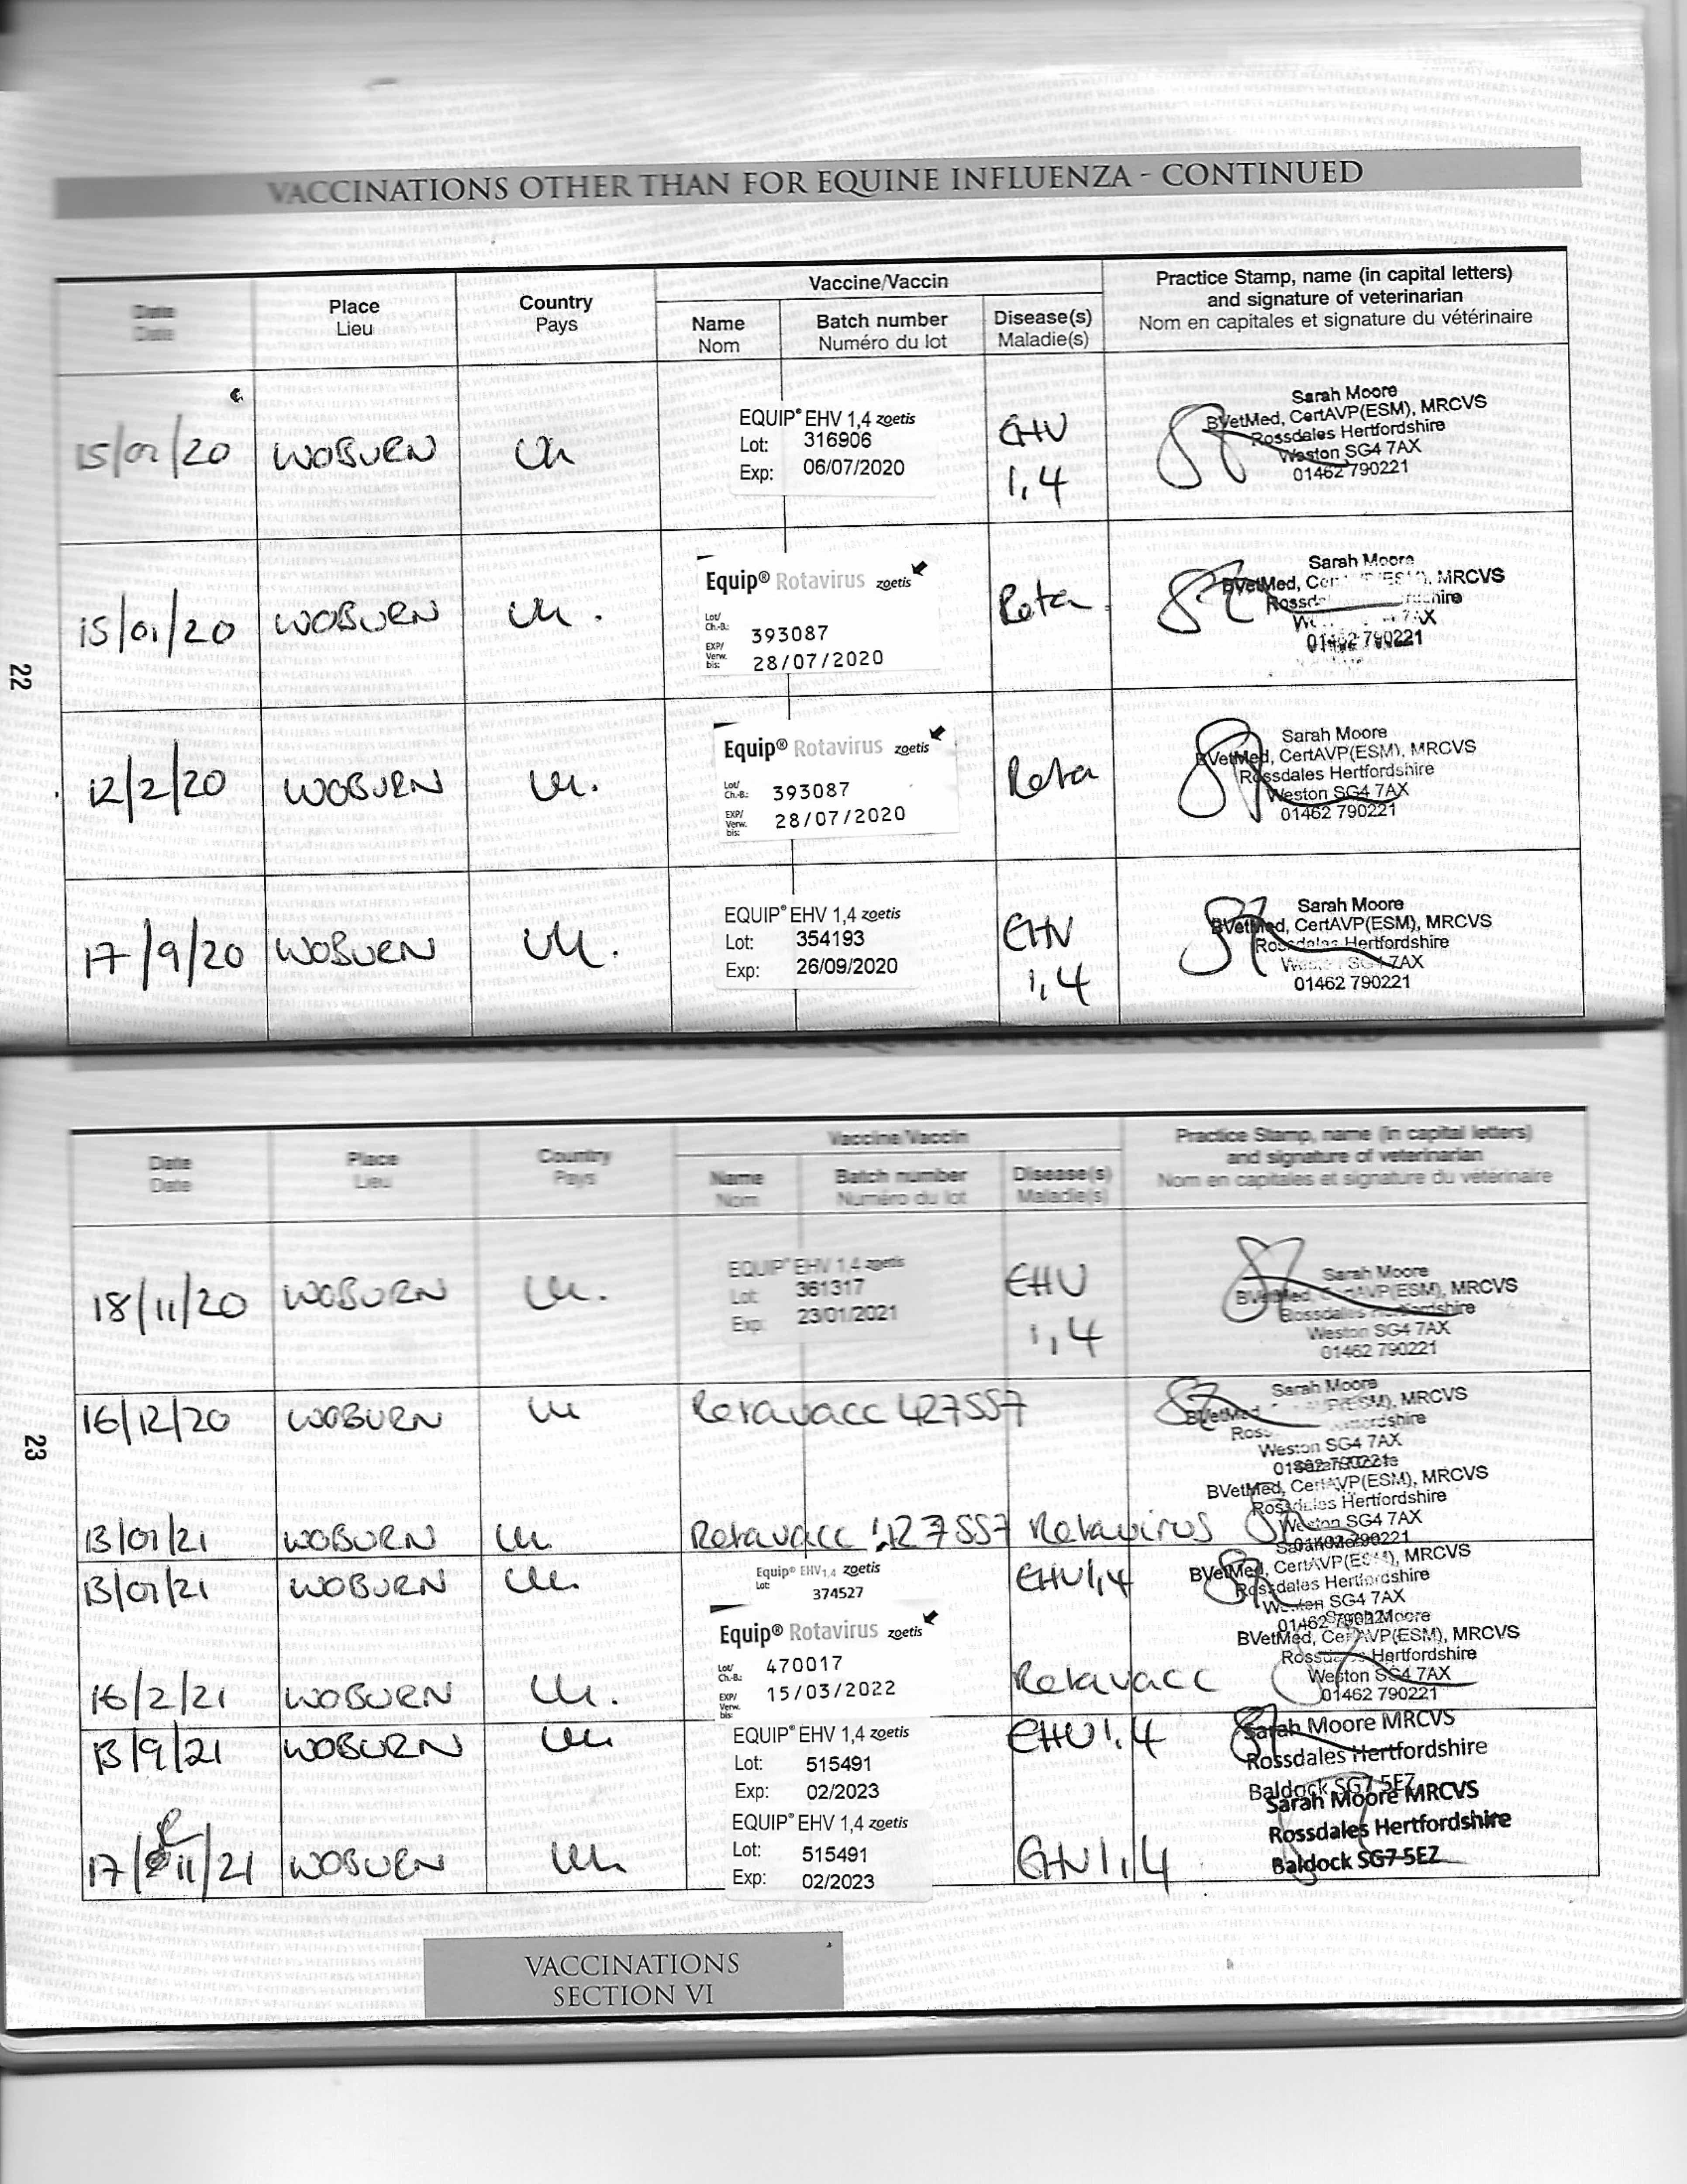 VACCINATIONS OTHER THAN FOR EQUINE INFLUENZA - CONTINUED
Date Place Country Vaccine/Vaccin Practice Stamp, name (in capital letters)
Date Lieu Pays and signature of veterinarian
Name Batch number Disease(s) Nom en capitales et signature du vétérinaire
Nom Numéro du lot Maladie(s)
15/01/20 WOBURN UK EQUIP® EHV 1,4 zoetis EHV 1,4
Lot: 316906
Exp: 06/07/2020
Sarah Moore
BVetMed, CertAVP(ESM), MRCVS
Rossdales Hertfordshire
Weston SG4 7AX
01462 790221
15/01/20 WOBURN UK. Equip® Rotavirus zoetis Rota
Lot/
Ch.-B.: 393087
EXP/
Verw.
bis: 28/07/2020
Sarah Moore
BVetMed, MRCVS
01462 790221
12/2/20 WOBURN UK. Equip® Rotavirus zoetis Rota
Lot/
Ch.-B.: 393087
EXP/
Verw.
bis: 28/07/2020
Sarah Moore
BVetMed, CertAVP(ESM), MRCVS
Rossdales Hertfordshire
Weston SG4 7AX
01462 790221
17/9/20 WOBURN UK. EQUIP® EHV 1,4 zoetis EHV 1,4
Lot: 354193
Exp: 26/09/2020
Sarah Moore
BVetMed, CertAVP(ESM), MRCVS
Rossdales Hertfordshire
01462 790221
22
Date Place Country Vaccine/Vaccin Practice Stamp, name (in capital letters)
Date Lieu Pays and signature of veterinarian
Name Batch number Disease(s) Nom en capitales et signature du vétérinaire
Nom Numéro du lot Maladie(s)
18/11/20 WOBURN UK. EQUIP® EHV 1,4 zoetis EHV 1,4
Lot: 361317
Exp: 23/01/2021
Sarah Moore
BVetMed, CertAVP(ESM), MRCVS
Rossdales Hertfordshire
Weston SG4 7AX
01462 790221
16/12/20 WOBURN UK Rotavacc 427557
Sarah Moore
BVetMed MRCVS
Weston SG4 7AX
13/01/21 WOBURN UK Rotavacc 427557 Rotavirus
BVetMed, CertAVP(ESM), MRCVS
Rossdales Hertfordshire
Weston SG4 7AX
13/01/21 WOBURN UK. Equip® EHV 1,4 zoetis EHV1,4
Lot: 374527
BVetMed, CertAVP(ESM), MRCVS
Rossdales Hertfordshire
Weston SG4 7AX
16/2/21 WOBURN UK. Equip® Rotavirus zoetis Rotavacc
Lot/
Ch.-B.: 470017
EXP/
Verw.
bis: 15/03/2022
Sarah Moore
BVetMed, CertAVP(ESM), MRCVS
Rossdales Hertfordshire
Weston SG4 7AX
01462 790221
13/9/21 WOBURN UK EQUIP® EHV 1,4 zoetis EHV1,4
Lot: 515491
Exp: 02/2023
Sarah Moore MRCVS
Rossdales Hertfordshire
Baldock SG7 5EZ
17/11/21 WOBURN UK EQUIP® EHV 1,4 zoetis EHV1,4
Lot: 515491
Exp: 02/2023
Sarah Moore MRCVS
Rossdales Hertfordshire
Baldock SG7 5EZ
23
VACCINATIONS
SECTION VI